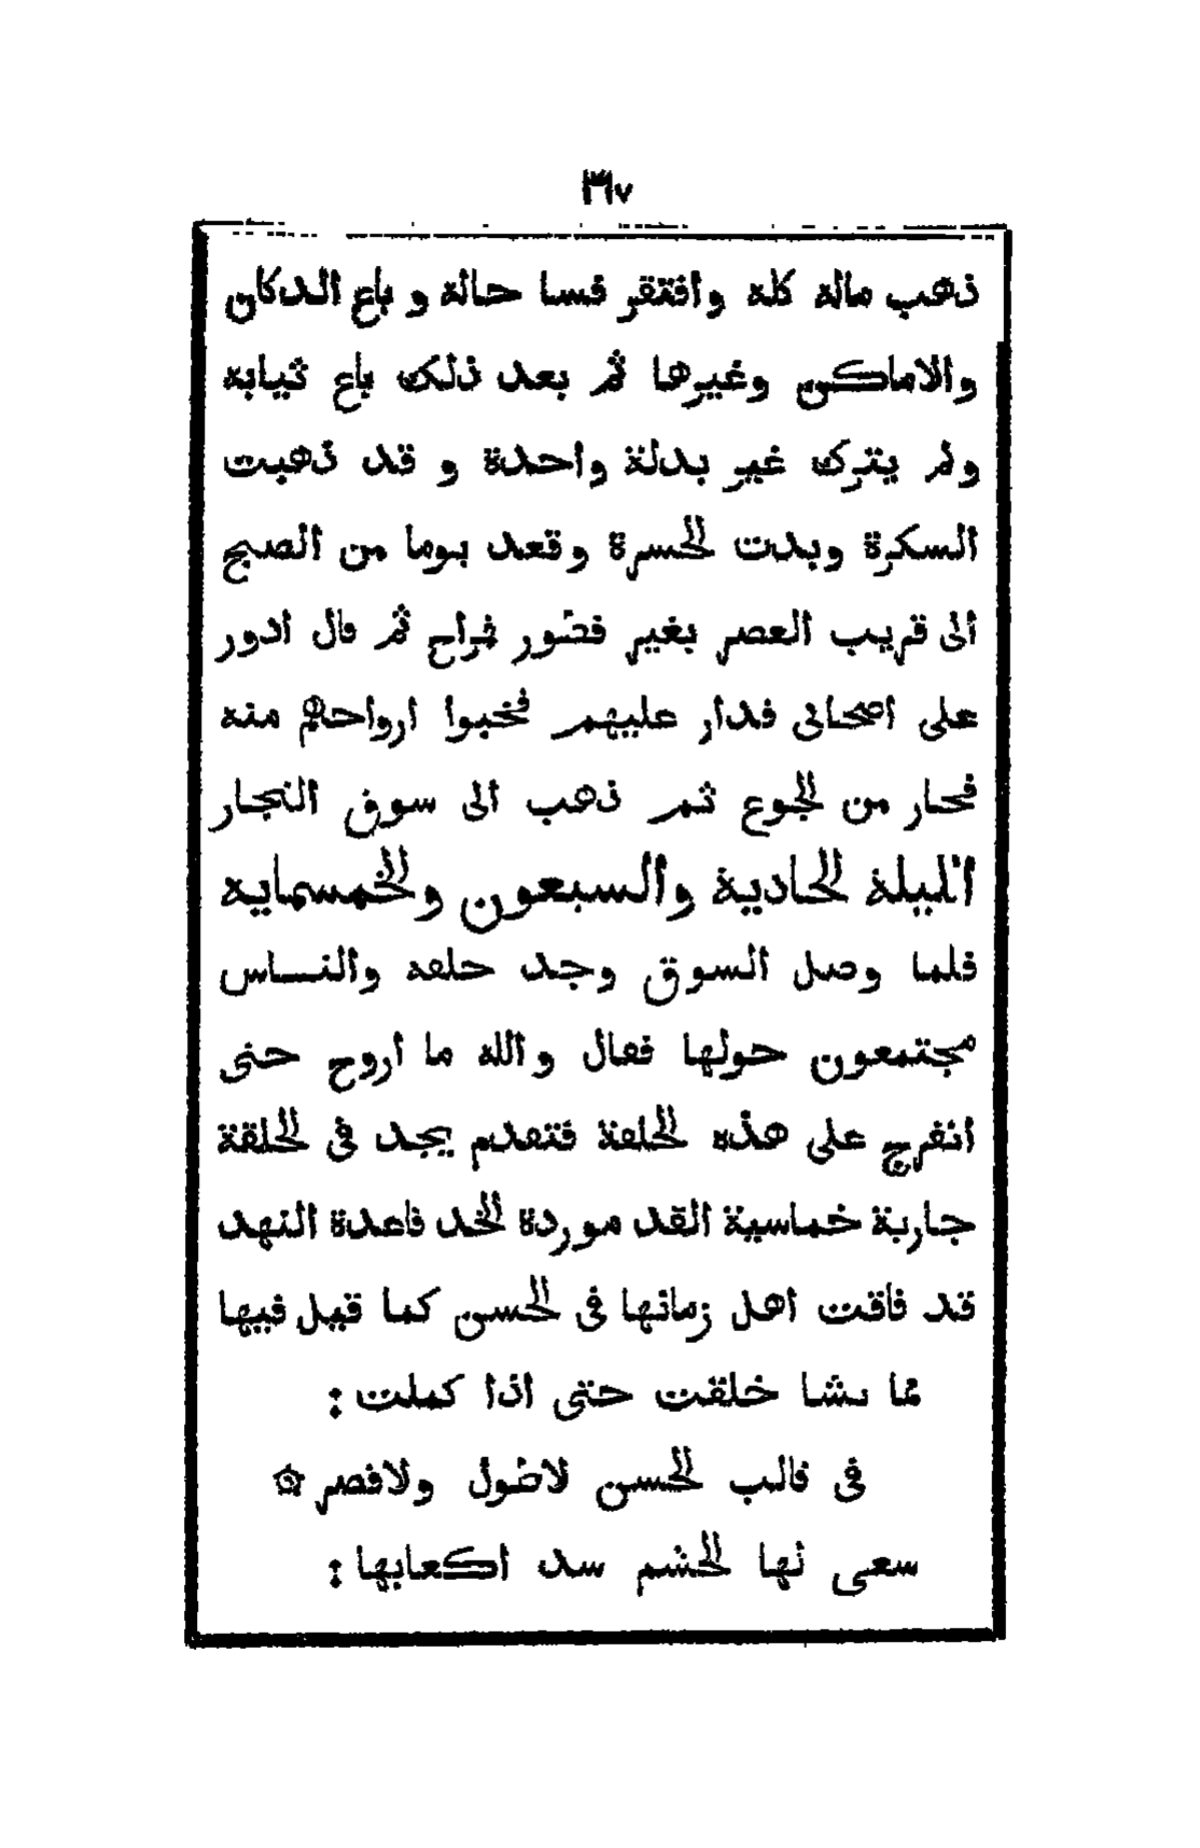 ٣٧
ذهب ماله كله وافتقر فسا حاله و باع الدكان
والاماكن وغيرها ثم بعد ذلك باع ثيابه
ولم يترك غير بدلة واحدة و قد ذهبت
السكرة وبدت الحسرة وقعد يوما من الصبح
الى قريب العصر بغير فطور فراح ثم قال ادور
على اصحابى فدار عليهم فخبوا ارواحهم منه
فحار من الجوع ثم ذهب الى سوق التجار
الليلة الحادية والسبعون والخمسماية
فلما وصل السوق وجد حلقه والناس
مجتمعون حولها فقال والله ما اروح حتى
اتفرج على هذه الحلقة فتقدم يجد فى الحلقة
جارية خماسية القد موردة الخد قاعدة النهد
قد فاقت اهل زمانها فى الحسن كما قيل فيها
مما نشا خلقت حتى اذا كملت :
فى قالب الحسن لاطول ولاقصر ۞
سعى لها الخشم سد اكعابها :